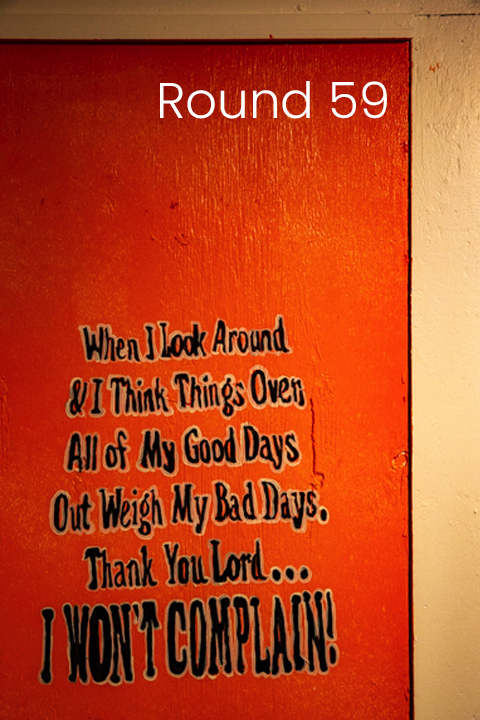 Round 59
When I Look Around
& I Think Things Over,
All of My Good Days
Out Weigh My Bad Days.
Thank You Lord...
I WON'T COMPLAIN!